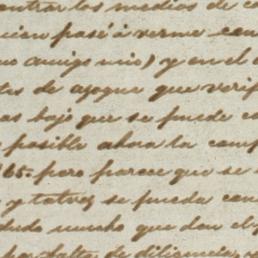 entrar los medios de co
quien pasé á verme con
amigo mio) y en el
tes de azogue que verif
as bajo que se puede co
posible ahora la comp
65. pero parece que se
y talvez se pueda con
dudo mucho que don
falta de diligencia